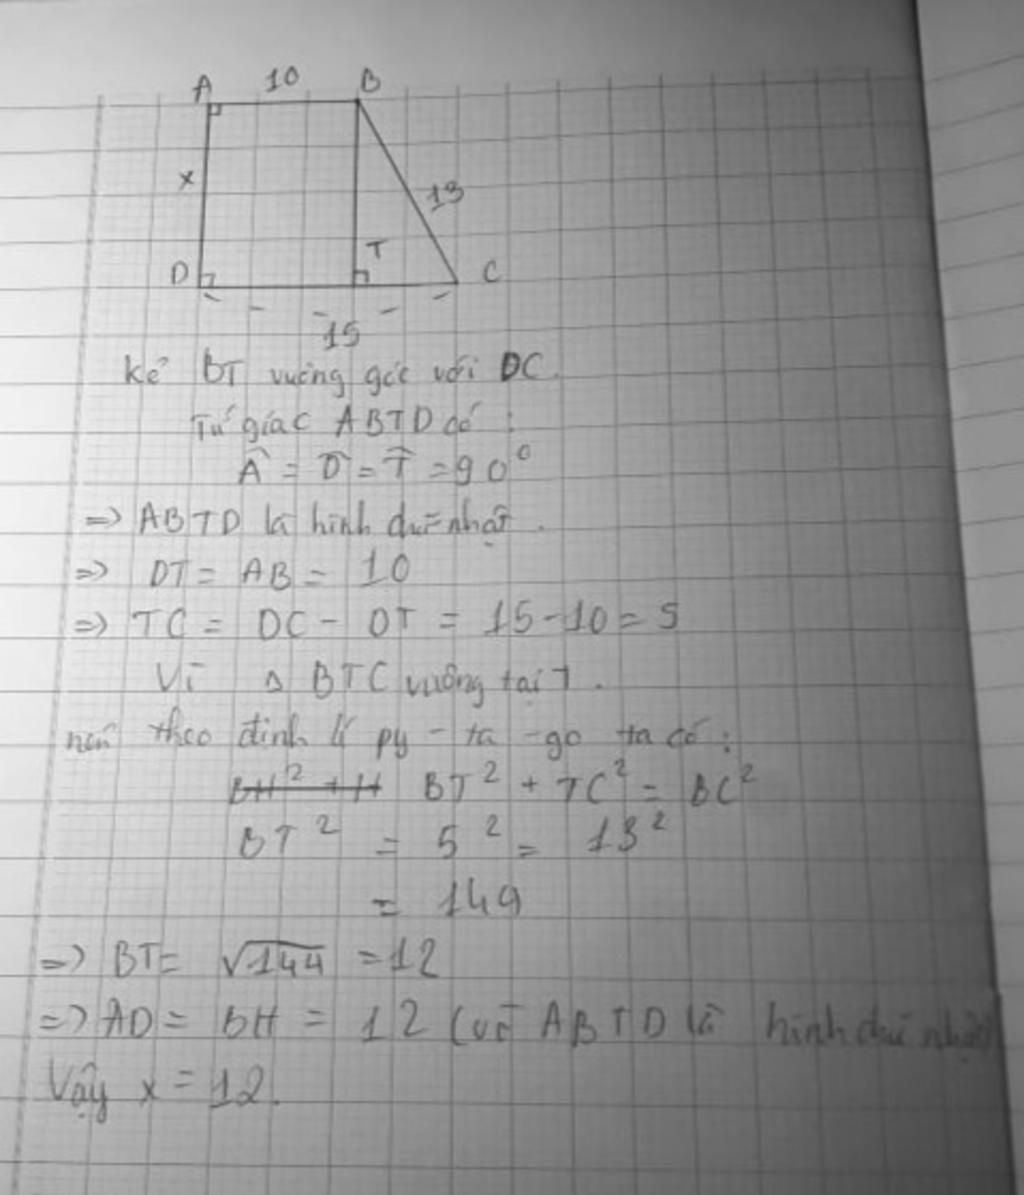 A 10 B
x 13
D T C
15
kẻ BT vuông góc với DC.
Tứ giác ABTD có :
Â = D̂ = T̂ = 90°
=> ABTD là hình chữ nhật .
=> DT = AB = 10
=> TC = DC - DT = 15 - 10 = 5
Vì Δ BTC vuông tại T .
nên theo định lí py - ta - go ta có :
BH² + H BT² + TC² = BC²
BT² = 5² = 13²
= 149
=> BT = √144 = 12
=> AD = BH = 12 (vì ABTD là hình chữ nhật)
Vậy x = 12.